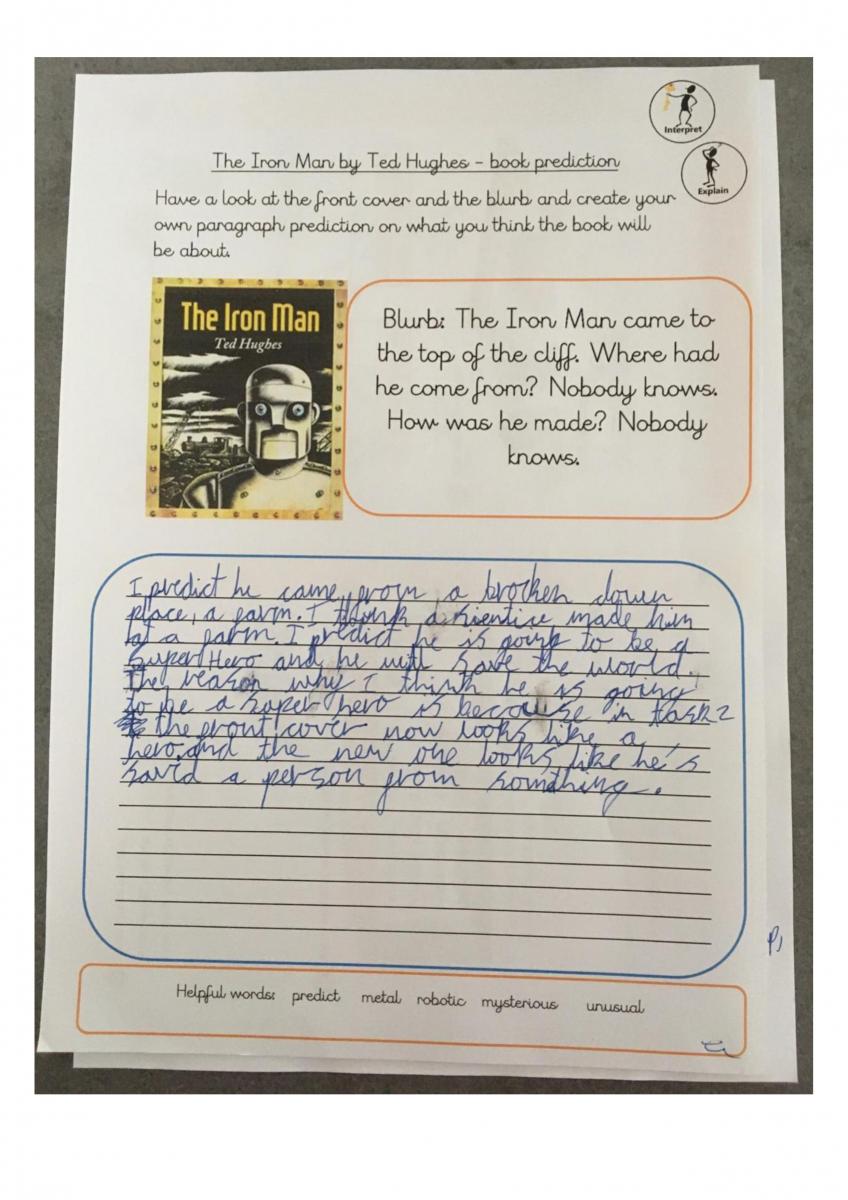 Interpret
Explain
The Iron Man by Ted Hughes - book prediction
Have a look at the front cover and the blurb and create your
own paragraph prediction on what you think the book will
be about.
The Iron Man
Ted Hughes
Blurb: The Iron Man came to
the top of the cliff. Where had
he come from? Nobody knows.
How was he made? Nobody
knows.
I predict he came from a brocken down
place, a farm. I think a made him
at a farm. I predict he is going to be a
Super Hero and he will save the world.
The reason why I think he is going
to be a super hero is because in task 2
the front cover now looks like a
hero and the new one looks like he's
savrd a person from somthing.
Helpful words: predict metal robotic mysterious unusual